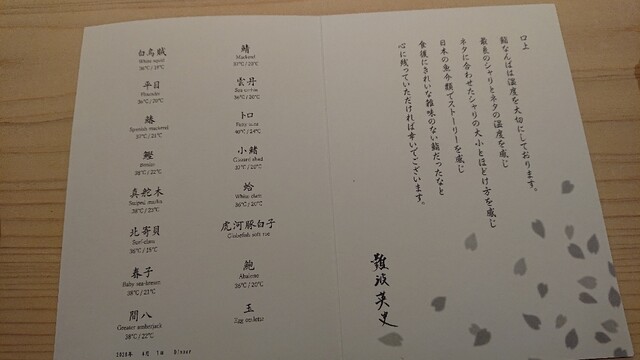 口上
鮨なんばは温度を大切にしております。
最良のシャリとネタの温度を感じ
ネタに合わせたシャリの大小とほどけ方を感じ
日本の魚介類でストーリーを感じ
食後にきれいな雑味のない鮨だったなと
心に残っていただければ幸いでございます。
難波英史
鯖
Mackerel
雲丹
Sea urchin
36°C / 20°C
トロ
Fatty tuna
40°C / 24°C
小鰭
Gizzard shad
37°C / 20°C
蛤
White clam
36°C / 20°C
虎河豚白子
Globefish soft roe
鮑
Abalone
36°C / 20°C
玉
Egg omelette
白烏賊
White squid
36°C / 19°C
平目
Flounder
36°C / 20°C
鰆
Spanish mackerel
37°C / 21°C
鰹
Bonito
38°C / 22°C
真舵木
Striped marlin
38°C / 23°C
北寄貝
Surf-clam
36°C / 19°C
春子
Baby sea-bream
38°C / 21°C
間八
Greater amberjack
38°C / 22°C